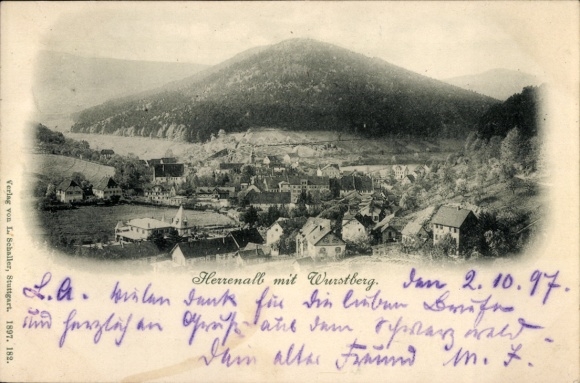 Herrenalb mit Wurstberg.
Verlag von L. Schaller, Stuttgart. 1897. 182.
den 2.10.97.
L. A. Vielen Dank für die lieben Briefe
und herzlichen Gruß aus dem Schwarzwald
Dein alter Freund M. F.